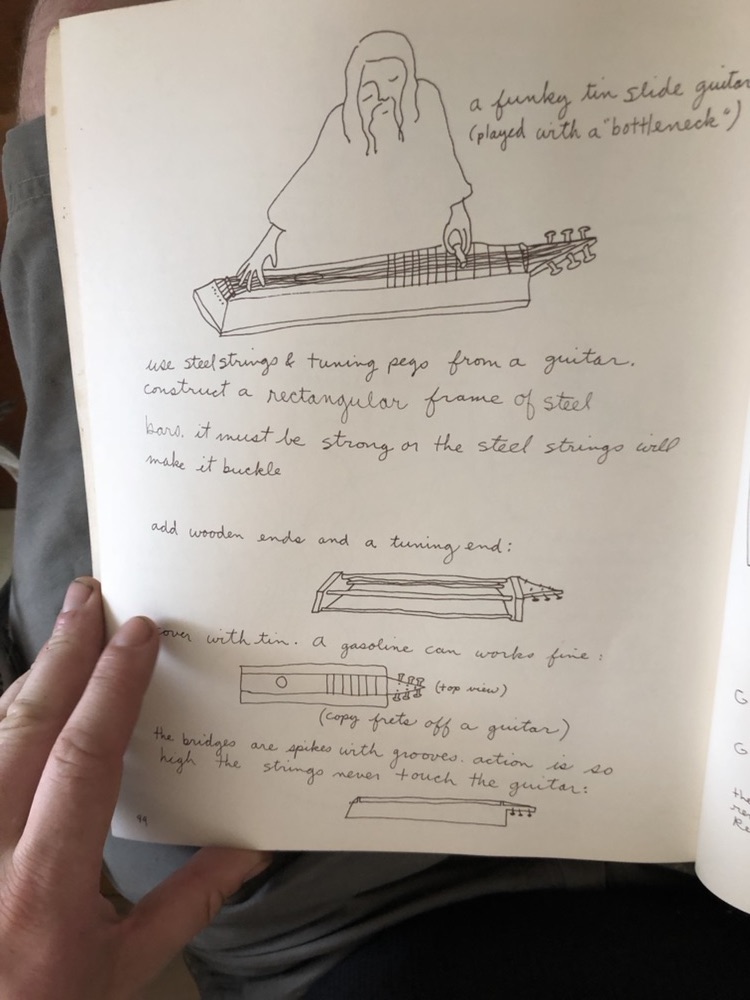 a funky tin slide guitar
(played with a "bottleneck")
use steel strings & tuning pegs from a guitar.
construct a rectangular frame of steel
bars. it must be strong or the steel strings will
make it buckle
add wooden ends and a tuning end:
cover with tin. a gasoline can works fine:
(top view)
(copy frets off a guitar)
the bridges are spikes with grooves. action is so
high the strings never touch the guitar:
G
G
the